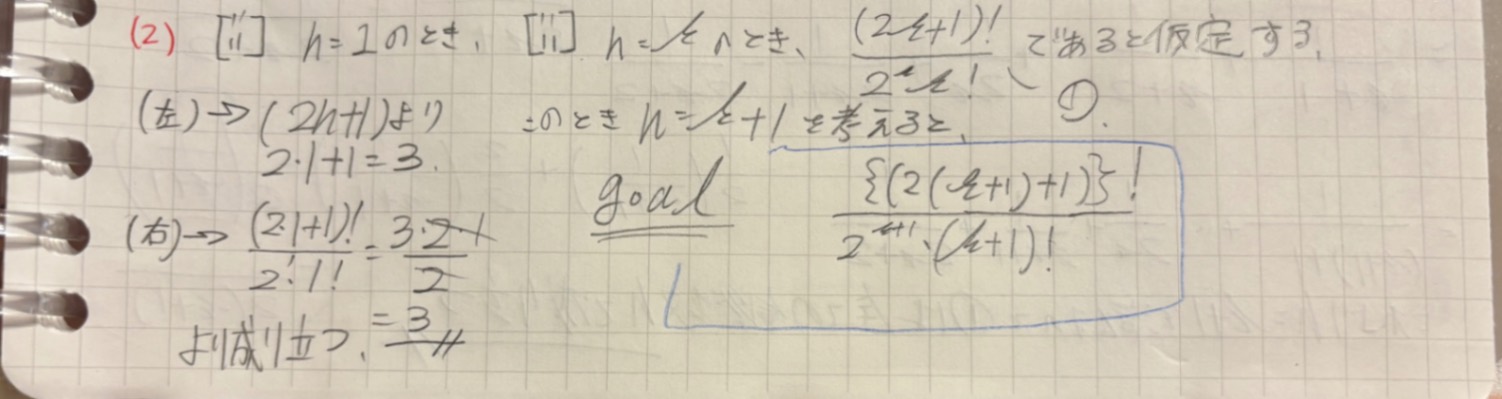 (2) [i] n=1のとき、
(左)→(2n+1)より
2・1+1=3.
(右)→ (2・1+1)!/2¹・1! = 3・2・1/2
=3
より成り立つ.
[ii] n=kのとき、 (2k+1)!/2^k k! であると仮定する.
①.
このとき n=k+1を考えると、
goal {(2(k+1)+1)}!/2^{k+1}・(k+1)!